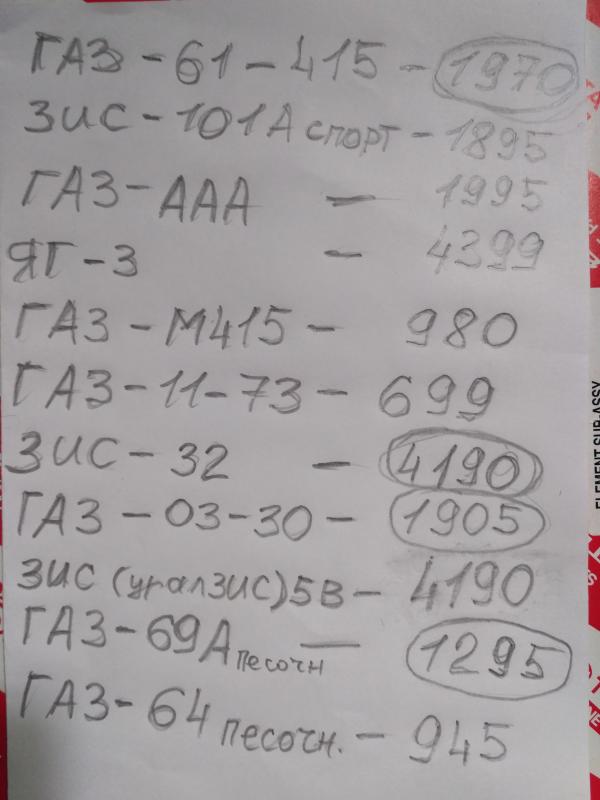 ГАЗ-61-415-1970
ЗИС-101А спорт-1895
ГАЗ-ААА - 1995
ЯГ-3 - 4399
ГАЗ-М415- 980
ГАЗ-11-73- 699
ЗИС-32 - 4190
ГАЗ-03-30- 1905
ЗИС (уралЗИС)5В- 4190
ГАЗ-69А песочн - 1295
ГАЗ-64 песочн. - 945
ELEMENT SUB-ASSY